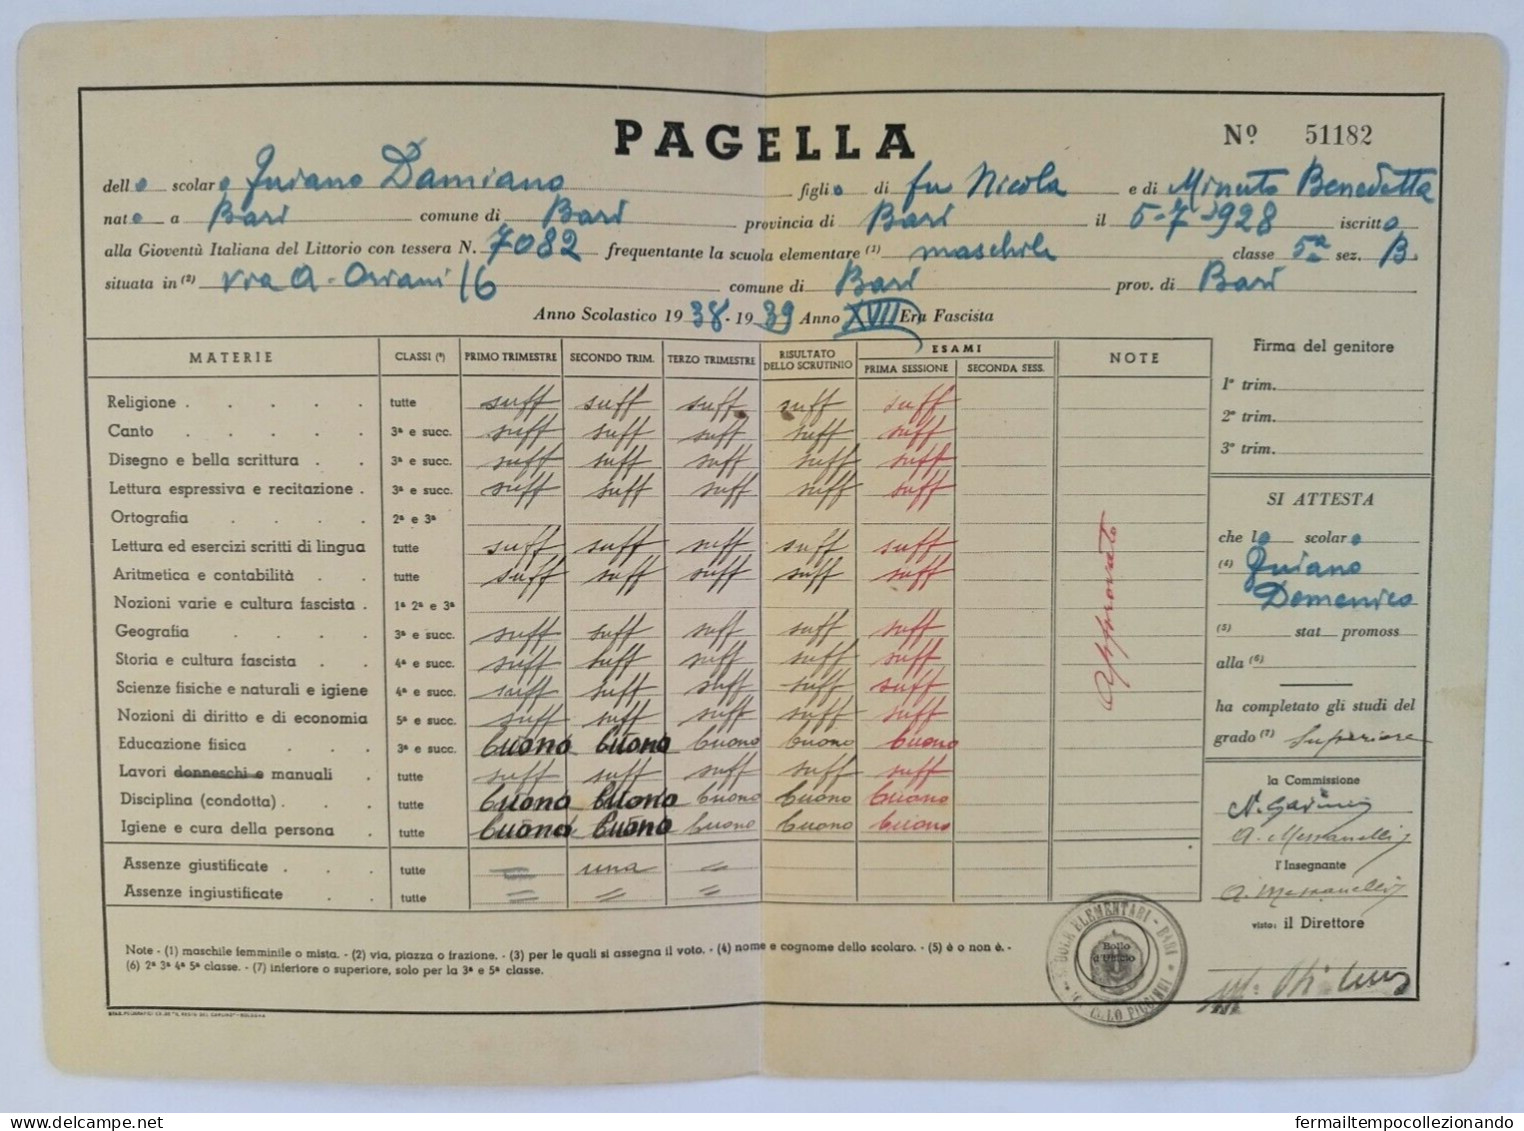 PAGELLA
Nº 51182
dello scolaro Juiano Damiano figlio di fu Nicola e di Minuto Benedetta
nato a Bari comune di Bari provincia di Bari il 5-7-1928 iscritto
alla Gioventù Italiana del Littorio con tessera N. 7082 frequentante la scuola elementare (1) maschile classe 5a sez. B.
situata in (2) via A. Oriani 16 comune di Bari prov. di Bari
Anno Scolastico 1938-1939 Anno XVII Era Fascista
MATERIE CLASSI (³) PRIMO TRIMESTRE SECONDO TRIM. TERZO TRIMESTRE RISULTATO DELLO SCRUTINIO ESAMI PRIMA SESSIONE SECONDA SESS. NOTE
Religione . . . . . tutte suff suff suff suff suff
Canto . . . . . 3ª e succ. suff suff suff suff suff
Disegno e bella scrittura . . 3ª e succ. suff suff suff suff suff
Lettura espressiva e recitazione . 3ª e succ. suff suff suff suff suff
Ortografia . . . . 2ª e 3ª
Lettura ed esercizi scritti di lingua tutte suff suff suff suff suff
Aritmetica e contabilità . . tutte suff suff suff suff suff
Nozioni varie e cultura fascista . 1ª 2ª e 3ª
Geografia . . . . 3ª e succ. suff suff suff suff suff
Storia e cultura fascista . . 4ª e succ. suff suff suff suff suff
Scienze fisiche e naturali e igiene 4ª e succ. suff suff suff suff suff
Nozioni di diritto e di economia 5ª e succ. suff suff suff suff suff
Educazione fisica . . . 3ª e succ. buono buono buono buono buono
Lavori donneschi e manuali . tutte suff suff suff suff suff
Disciplina (condotta) . . . tutte buono buono buono buono buono
Igiene e cura della persona . tutte buono buono buono buono buono
Assenze giustificate . . . tutte = una =
Assenze ingiustificate . . tutte = = =
Approvato
Note - (1) maschile femminile o mista. - (2) via, piazza o frazione. - (3) per le quali si assegna il voto. - (4) nome e cognome dello scolaro. - (5) è o non è. -
(6) 2ª 3ª 4ª 5ª classe. - (7) inferiore o superiore, solo per la 3ª e 5ª classe.
Firma del genitore
1º trim.
2º trim.
3º trim.
SI ATTESTA
che lo scolaro
(4) Juiano
Domenico
(5) stat promoss
alla (6)
ha completato gli studi del
grado (7) superiore
la Commissione
A. Messanelli
l'Insegnante
A. Messanelli
visto: il Direttore
SCUOLE ELEMENTARI - BARI
Bollo
d'Ufficio
PICCINNI
fermailtempocollezionando